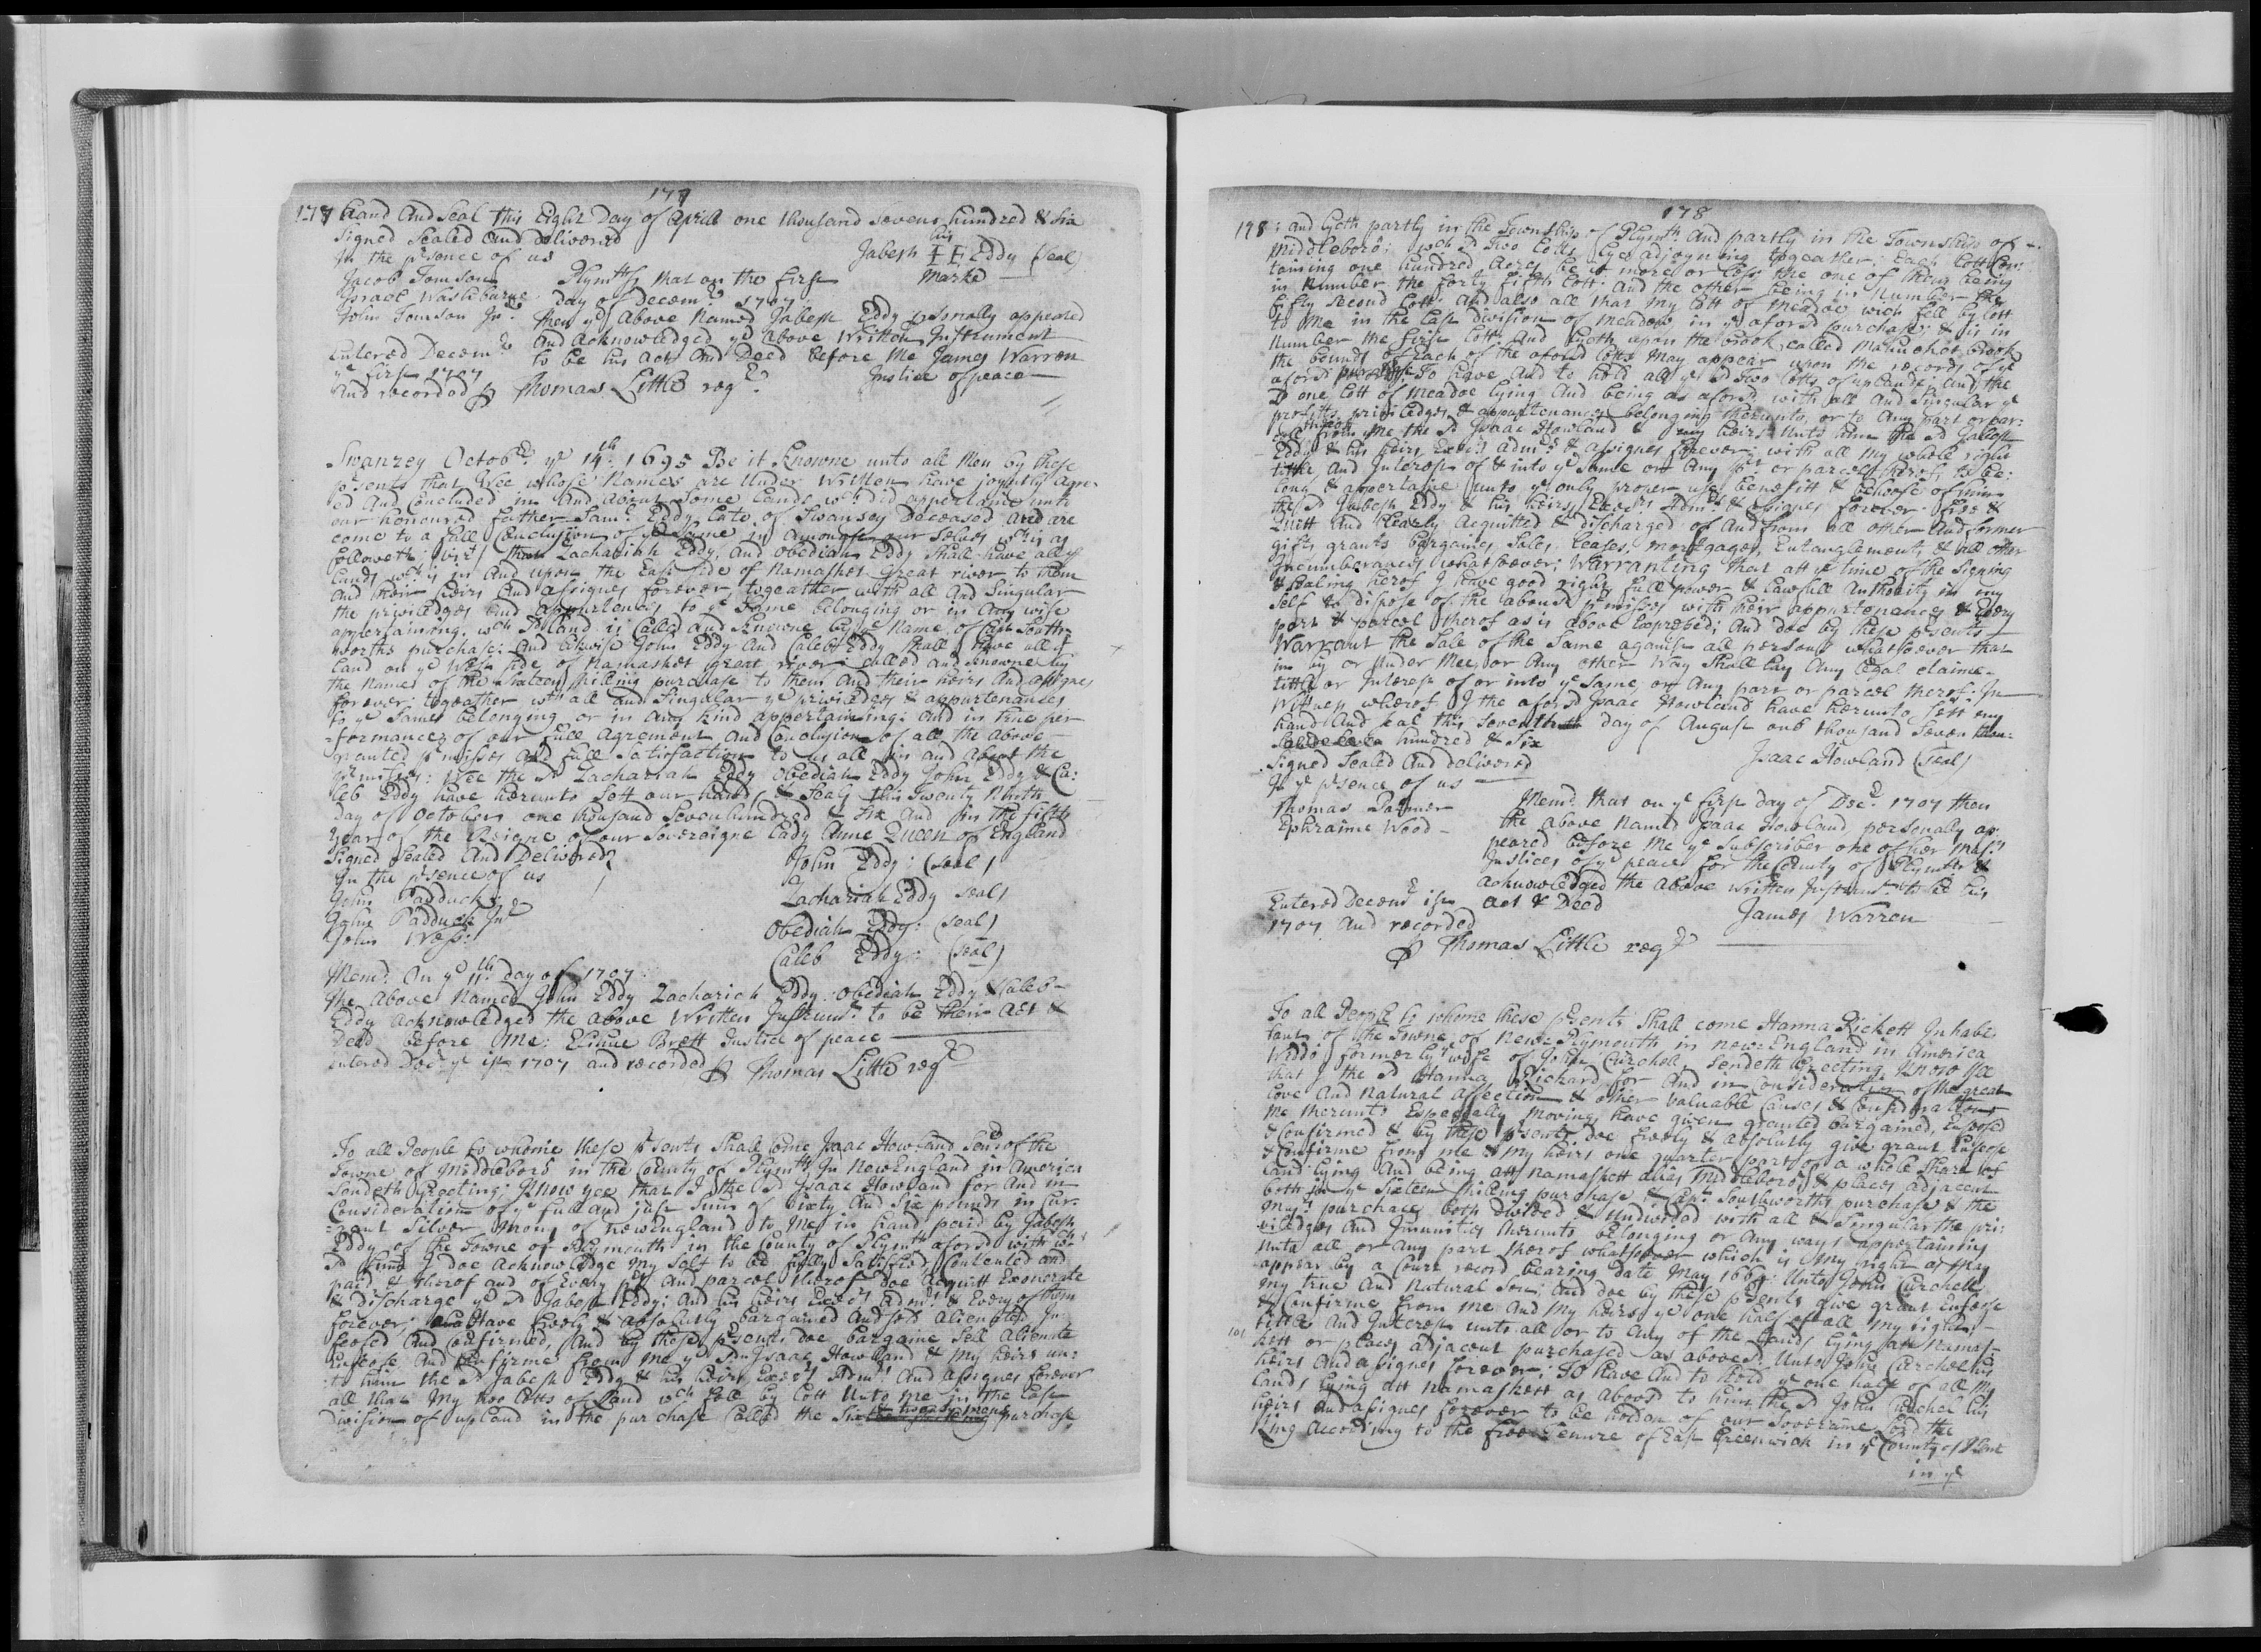 177
177 hand And Seal this Eight Day of Aprill one thousand seven hundred & six
Signed Sealed And delivered
In the p^rsence of us
his
Jabesh I E Eddy (Seal)
marke
Jacob Tomson
Israel Washburne
John Tomson Jn^r
Plym^th ss that on the first
day of Decem^r 1707
then y^e Above Named Jabesh Eddy p^rsonally appeared
And Acknowledged y^e above Written Instrument
to be his Act And Deed before Me James Warren
Justice of peace
Entered Decem^r
y^e first 1707
And recorded ⅌ Thomas Little reg^r
Swanzey Octob^r y^e 14^th 1695 Be it Knowne unto all Men by these
p^rsents that Wee whose Names are Under Written have joyntly Agre-
ed And Concluded in And about some Lands w^ch did appertaine unto
our honoured father Sam^ll Eddy late of Swansey Deceased And are
come to a full Conclusion of y^e Same in Amongst our Selves w^ch is as
followeth: viz^t that Zachariah Eddy, And Obediah Eddy Shall have all y^e
Lands w^ch is in And upon the East side of Namasket Great river to them
And their heirs And assignes forever, togeather with all And Singular
the priviledges And appurtences to y^e Same belonging or in Any wise
appertaining. w^ch s^d land is Called And Knowne by y^e Name of Cap^t South-
worths purchase: And likwise John Eddy And Caleb Eddy Shall have all y^e
land on y^e West side of Namasket great river: called and Knowne by
the Names of the Sixteen shilling purchase to them And their heirs And assignes
forever togeather w^th all and Singular y^e priviledges & appurtenances
to y^e Same belonging or in Any kind appertaineing: And in true per
-formance of our full Agrement And Conclusion of all the above
granted p^rmisses And full Satisfaction to us all in and About the
p^rmisses: Wee the s^d Zachariah Eddy Obediah Eddy John Eddy & Ca:
leb Eddy have hereunto Sett our hands & Seals this Twenty Ninth
day of October one thousand Seven hundred & six And in the fifth
year of the Reigne of our Soveraigne Lady Anne Queen of England
Signed Sealed And Delivered
In the p^rsence of us
John Padduck
John Padduck Jn^r
John West:
John Eddy: (Seal)
Zachariah Eddy Seal)
Obediah Eddy: (Seal)
Caleb Eddy: (Seal)
Mem^d On y^e 11^th day of 1707
the Above Named John Eddy Zachariah Eddy: Obediah Eddy & Caleb
Eddy Acknowledged the above Written Instrum^t to be their Act &
Deed before Me: Elihue Brett Justice of peace
entered Dec^r y^e 1st 1707 and recorded ⅌ Thomas Little reg^r
To all People to whome these p^rsents Shall come Isaac Howland Sen^r of the
Towne of Middleboro in the County of Plym^th In New England in America
Sendeth Greeting; Know yee that I the s^d Isaac Howland for And in
Consideration of y^e full and just Sum of Sixty And Six pounds in Cur-
-rant Silver Mony of New England to Me in hand paid by Jabesh
Eddy of the Towne of Plymouth in the County of Plym^th afors^d with w^ch
s^d Sume I doe Acknowledge my Self to be fully Satisfied, Contented and
paid & therof and of Every p^rt And parcel therof doe Acquitt Exonerate
& discharge y^e s^d Jabesh Eddy: And his heirs Exec^rs Adm^rs & Every of them
forever; Have freely & absolutely bargained And sold Alienated In
feofed And Confirmed, And by these p^rsents doe bargaine Sell Alienate
Enfeofe And Confirme from me y^e s^d Isaac Howland & My heirs un:
to him the s^d Jabesh Eddy & his heirs Exec^rs Adm^rs And assignes forever
all that My two lotts of Land w^ch fell by lott Unto me in the last
& twenty mens
Division of upland in the purchase Called the Six purchase
178
178: and lyeth partly in the Township of Plym^th And partly in the Township of
Middleboro; w^ch s^d Two lotts lyes adjoyning togeather: Each lott Con:
taining one hundred Acres be it more or less the one of them being
in Number the forty fifth lott: And the other being in Number the
fifty second lott: And also all that my lott of Meadow wich fell by lott
to me in the last division of Meadow in y^e afors^d purchase; & is in
Number the first lott: And lyeth upon the brook called Mahuchet brook
the bounds of Each of the afors^d lotts May appear upon the records of y^e
afors^d purchase To have And to hold all y^e s^d Two lotts of uplande And the
s^d one lott of Meadoe lying And being as afors^d with all And Singular y^e
profitts priviledges & appurtenances belonging thereunto, or to Any part or par:
from Me the s^d Isaac Howland & my heirs Unto him the s^d Jabesh
Eddy & his heirs Exec^rs adm^rs & assignes forever with all My whole right
title And Interest of & into y^e Same or Any p^rt or parcel therof, to be:
long & appertaine unto y^e only proper use benefitt & behoofe of him
the s^d Jabesh Eddy & his heirs Exec^rs Adm^rs & assignes forever: free &
Quett And Clearly Acquitted & discharged of And from all other And former
gifts grants bargaines, Sales, leases, mortgages, Entanglements & all other
Incumberances whatsoever; Warranting that att y^e time of the Signing
& Sealing herof I have good right, full power & lawfull Authority in my
Self to dispose of the aboues^d p^rmisses with their appurtenances & Every
part & parcel therof as is above Exprassed; And doe by these p^rsents
Warrant the Sale of the Same against all persons whatsoever that
in by or Under Mee, or Any other Way Shall lay Any legal claime
title or Interest of or into y^e Same, or Any part or parcel therof: In
Wittness wherof I the afors^d Isaac Howland have hereunto sett my
hand And seal this Seventh day of August one thousand Seven
hundred & Six
Signed Sealed And delivered
In y^e p^rsence of us
Isaac Howland (Seal)
Thomas Palmer
Ephraime Wood
Mem^d that on y^e first day of Dec^r 1707 then
the above Named Isaac Howland personally ap:
peared before Me y^e Subscriber one of her Maj^ts
Justices of y^e peace for the County of Plym^th &
Acknowledged the above written Instrum^t to be his
Act & Deed
James Warren
Entered Decem^r 1st
1707 And recorded
⅌ Thomas Little reg^r
To all People to whome these p^rsents Shall come Hanna Rickett Inhabe
tant of the Towne of New-Plymouth in New-England in America
Widdo formerly wife of John Curchell, Sendeth Greeting Know yee
that I the s^d Hanna Rickard for And in Consideration of the great
love And Natural Affection & other valuable Causes & Considrations
Me thereunto Especially Moving, have given granted bargained, Enfeofed
& Confirmed & by these p^rsents doe freely & absolutely give grant Enfeofe
& Confirme from me & my heirs one quarter part of a whole Share of
land lying And being att Namaskett alias Middleboro, & places adjacent
both in y^e Sixteen shilling purchase & Cap^t Southworths purchase & the
purchace both divided & Undivided with all & Singular the pri:
viledges And Immunities thereunto belonging or Any ways appertaining
Unto all or Any part therof whatsoever which is My right as May
appear by a Court record bearing date May 1664: Unto John Curchell
My true And Natural Son; And doe by these p^rsents give grant Enfeofe
& Confirme from Me And My heirs y^e one half of all My right,
title And Interest unto all or to Any of the lands lying att Namas-
kett or places adjacent purchased as aboves^d: Unto John Curchel his
heirs And asignes forever: To have And to hold y^e one half of all My
lands lying att Namaskett as aboves^d to him the s^d John Curchel his
heirs And asignes forever to be holden of our Soveraine Lord the
King According to the free Tenure of East Greenwich in y^e County of Kent
in y^e